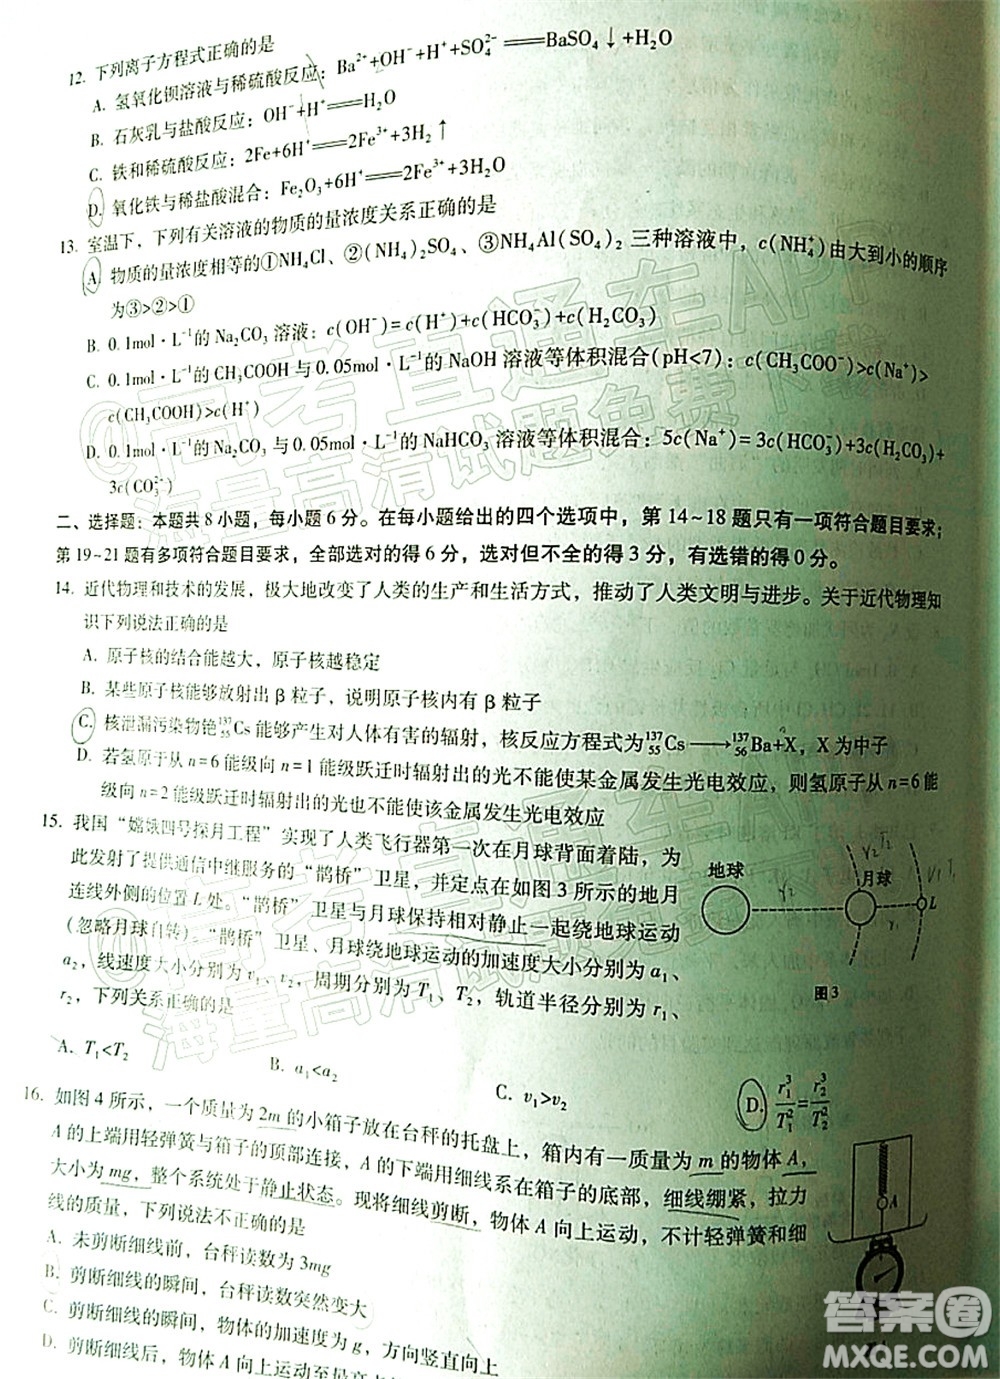 12. 下列离子方程式正确的是
A. 氢氧化钡溶液与稀硫酸反应：Ba²⁺+OH⁻+H⁺+SO₄²⁻══BaSO₄↓+H₂O
B. 石灰乳与盐酸反应：OH⁻+H⁺══H₂O
C. 铁和稀硫酸反应：2Fe+6H⁺══2Fe³⁺+3H₂↑
D. 氧化铁与稀盐酸混合：Fe₂O₃+6H⁺══2Fe³⁺+3H₂O
13. 室温下，下列有关溶液的物质的量浓度关系正确的是
A. 物质的量浓度相等的①NH₄Cl、②(NH₄)₂SO₄、③NH₄Al(SO₄)₂ 三种溶液中，c(NH₄⁺)由大到小的顺序
为③>②>①
B. 0.1mol·L⁻¹的 Na₂CO₃ 溶液：c(OH⁻)=c(H⁺)+c(HCO₃⁻)+c(H₂CO₃)
C. 0.1mol·L⁻¹的 CH₃COOH 与 0.05mol·L⁻¹的 NaOH 溶液等体积混合(pH<7)：c(CH₃COO⁻)>c(Na⁺)>
c(CH₃COOH)>c(H⁺)
D. 0.1mol·L⁻¹的 Na₂CO₃ 与 0.05mol·L⁻¹的 NaHCO₃ 溶液等体积混合：5c(Na⁺)=3c(HCO₃⁻)+3c(H₂CO₃)+
3c(CO₃²⁻)
二、选择题：本题共 8 小题，每小题 6 分。在每小题给出的四个选项中，第 14~18 题只有一项符合题目要求；
第 19~21 题有多项符合题目要求，全部选对的得 6 分，选对但不全的得 3 分，有选错的得 0 分。
14. 近代物理和技术的发展，极大地改变了人类的生产和生活方式，推动了人类文明与进步。关于近代物理知
识下列说法正确的是
A. 原子核的结合能越大，原子核越稳定
B. 某些原子核能够放射出 β 粒子，说明原子核内有 β 粒子
C. 核泄漏污染物铯¹³⁷₅₅Cs 能够产生对人体有害的辐射，核反应方程式为¹³⁷₅₅Cs→¹³⁷₅₆Ba+X，X 为中子
D. 若氢原子从 n=6 能级向 n=1 能级跃迁时辐射出的光不能使某金属发生光电效应，则氢原子从 n=6 能
级向 n=2 能级跃迁时辐射出的光也不能使该金属发生光电效应
15. 我国“嫦娥四号探月工程”实现了人类飞行器第一次在月球背面着陆，为
此发射了提供通信中继服务的“鹊桥”卫星，并定点在如图 3 所示的地月
连线外侧的位置 L 处。“鹊桥”卫星与月球保持相对静止一起绕地球运动
(忽略月球自转)。“鹊桥”卫星、月球绕地球运动的加速度大小分别为 a₁、
a₂，线速度大小分别为 v₁、v₂，周期分别为 T₁、T₂，轨道半径分别为 r₁、
r₂，下列关系正确的是
地球
月球
L
图 3
A. T₁<T₂
B. a₁<a₂
C. v₁>v₂
D. r₁³/T₁²=r₂³/T₂²
16. 如图 4 所示，一个质量为 2m 的小箱子放在台秤的托盘上，箱内有一质量为 m 的物体 A，
A 的上端用轻弹簧与箱子的顶部连接，A 的下端用细线系在箱子的底部，细线绷紧，拉力
大小为 mg，整个系统处于静止状态。现将细线剪断，物体 A 向上运动，不计轻弹簧和细
线的质量，下列说法不正确的是
A
A. 未剪断细线前，台秤读数为 3mg
B. 剪断细线的瞬间，台秤读数突然变大
C. 剪断细线的瞬间，物体的加速度方向竖直向上
D. 剪断细线后，物体 A 向上运动至最高
@高考直通车APP
海量高清试题免费下载
@高考直通车APP
海量高清试题免费下载
答案圈
MXQE.COM